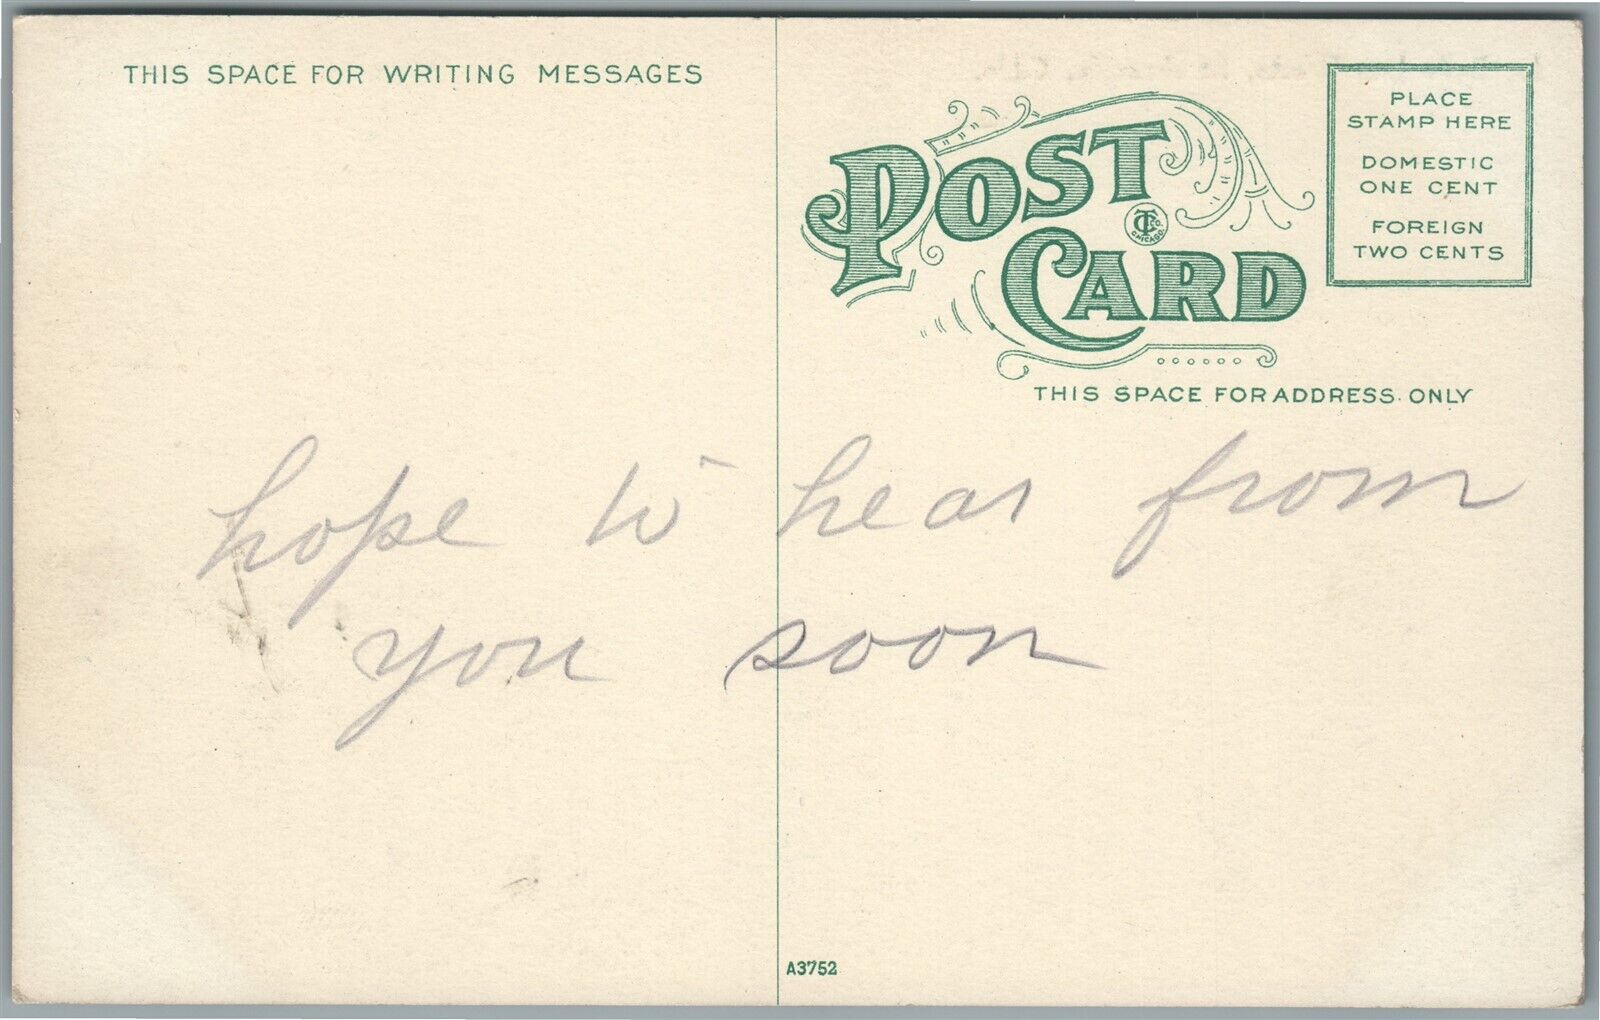 THIS SPACE FOR WRITING MESSAGES
POST CARD
CHICAGO
PLACE
STAMP HERE
DOMESTIC
ONE CENT
FOREIGN
TWO CENTS
THIS SPACE FOR ADDRESS ONLY
hope to hear from
you soon
A3752